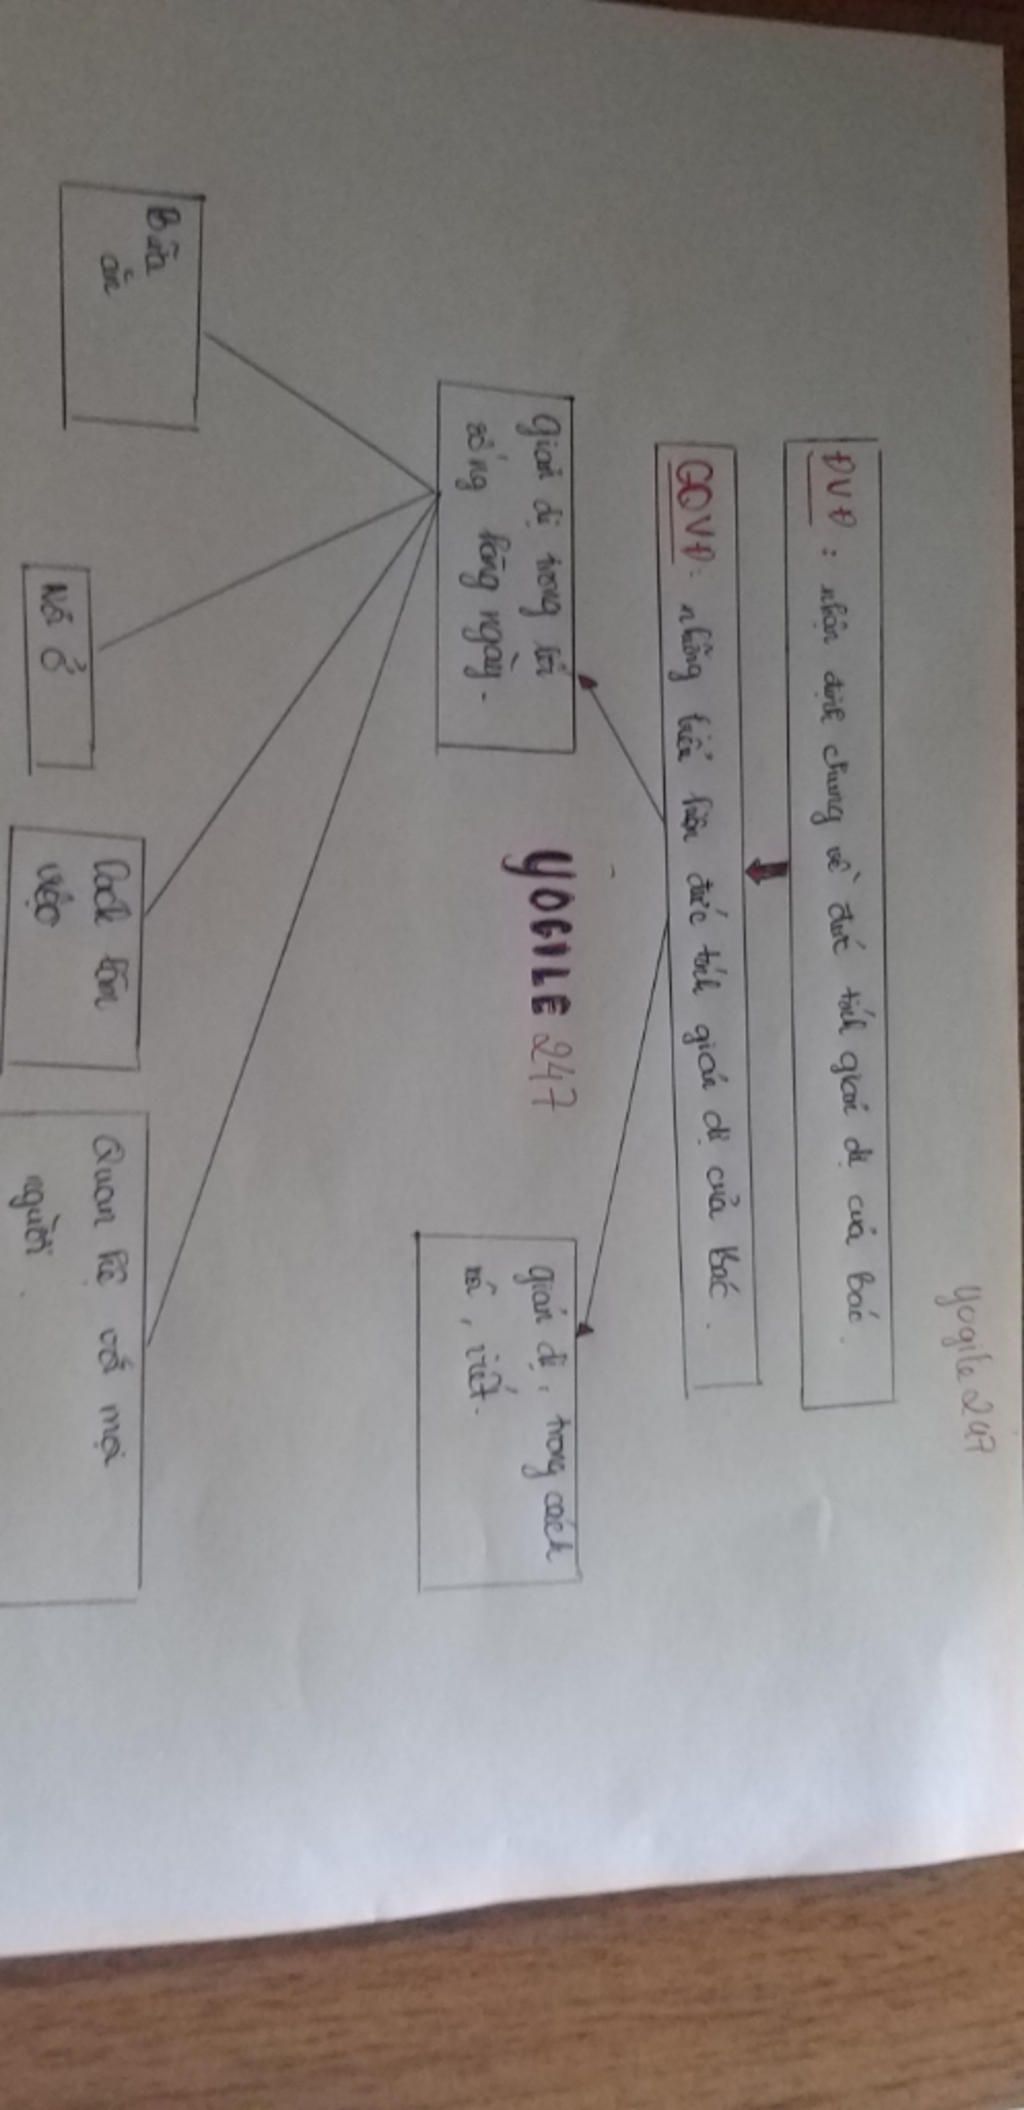 yogile247
ĐVĐ: nhận định chung về đức tính giản dị của Bác.
GQVĐ: những biểu hiện đức tính giản dị của Bác.
giản dị trong lối
sống hàng ngày.
giản dị, trong cách
nói, viết.
YOGILE247
Bữa
ăn
Nơi ở
Cách làm
việc
Quan hệ với mọi
người